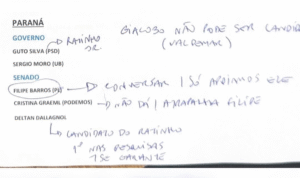 PARANÁ
GOVERNO → RATINHO JR
GUTO SILVA (PSD)
SERGIO MORO (UB)
GIACOBO NÃO PODE SER CANDIDA
(VALDEMAR)
SENADO
FILIPE BARROS (PL) → CONVERSAR / SÓ APOIAMOS ELE
CRISTINA GRAEML (PODEMOS) → NÃO DÁ / ATRAPALHA FILIPE
DELTAN DALLAGNOL
↳ CANDIDATO DO RATINHO
1º NAS PESQUISAS
SE GARANTE